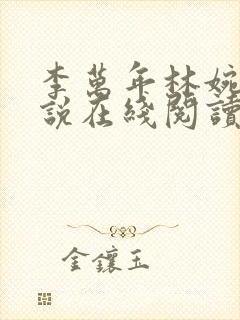 李萬年林婉
說在綫閱讀
金鑲玉